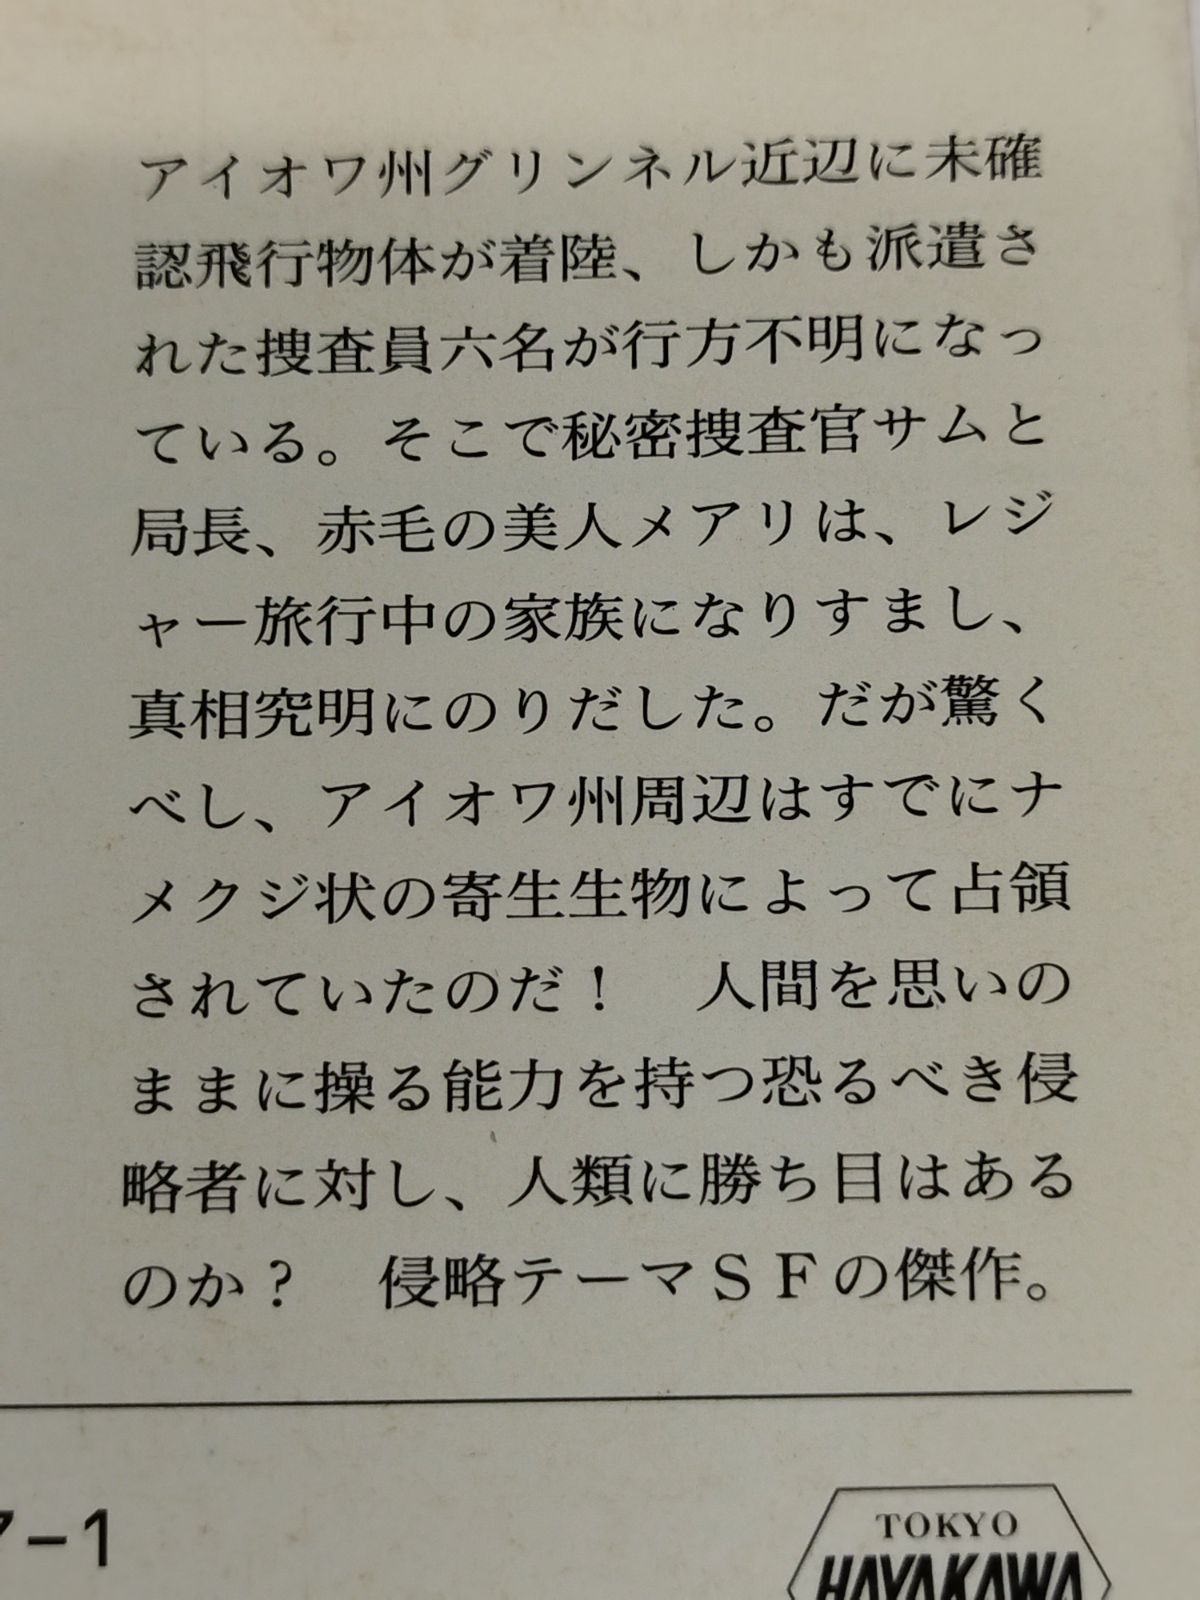 アイオワ州グリンネル近辺に未確
認飛行物体が着陸、しかも派遣さ
れた捜査員六名が行方不明になっ
ている。そこで秘密捜査官サムと
局長、赤毛の美人メアリは、レジ
ャー旅行中の家族になりすまし、
真相究明にのりだした。だが驚く
べし、アイオワ州周辺はすでにナ
メクジ状の寄生生物によって占領
されていたのだ！　人間を思いの
ままに操る能力を持つ恐るべき侵
略者に対し、人類に勝ち目はある
のか？　侵略テーマＳＦの傑作。
-1
TOKYO
HAYAKAWA